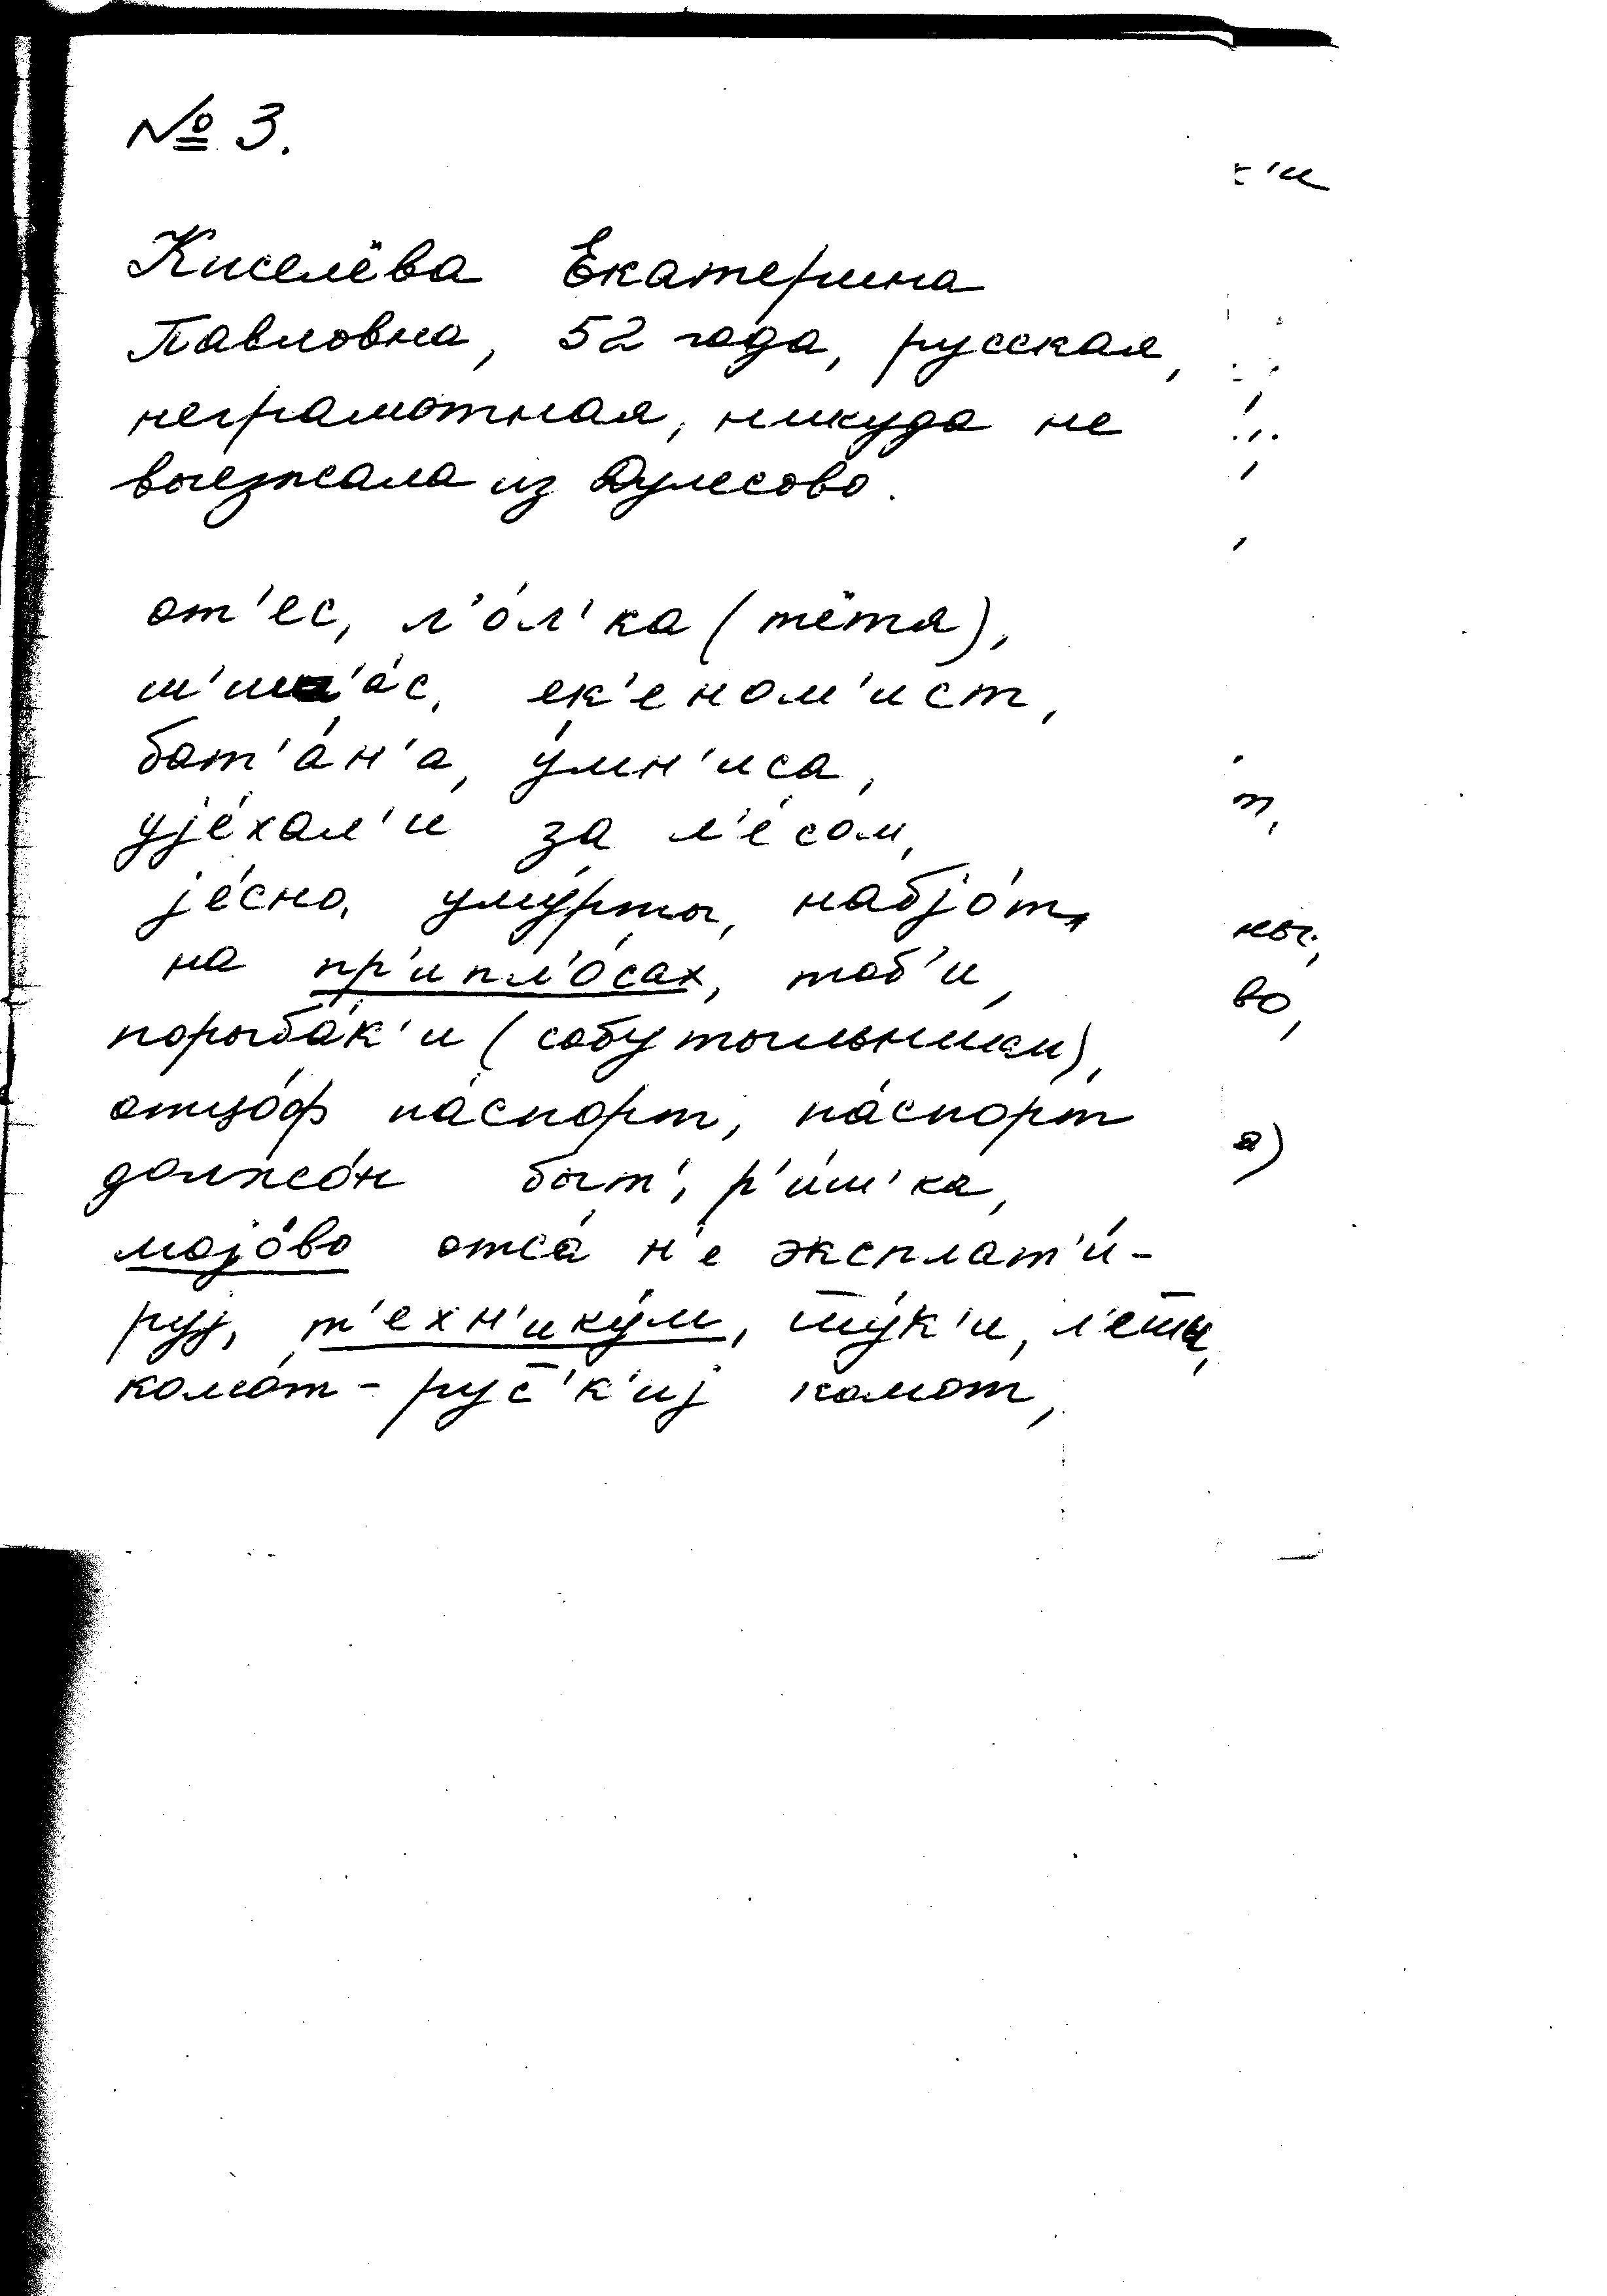 № 3.
Киселёва Екатерина
Павловна, 52 года, русская,
неграмотная, никуда не
выезжала из Дулесово.
от'ес, л'о́л'ка (тётя),
ек'еном'ист,
бат'а́н'а, у́мн'иса,
ује́хал'и за л'е́сом,
је́сно, уму́рты, набјо́т,
на пр'ипл'о́сах, таб'и,
порыба́к'и (собутыльники),
отцо́ф па́спорт, па́спорт
должо́н быт', р'и́м'ка,
мојо́во отса́ н'е эксплат'и́-
руј, т'ехн'ику́м, шу́к'и,
комо́т - рус̄'к'иј комот,
к'и
т,
ны;
во,
а)